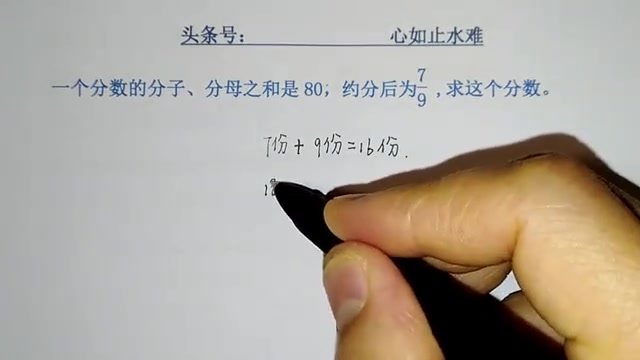 头条号： 心如止水难
一个分数的分子、分母之和是 80；约分后为7/9，求这个分数。
7份 + 9份 = 16份.